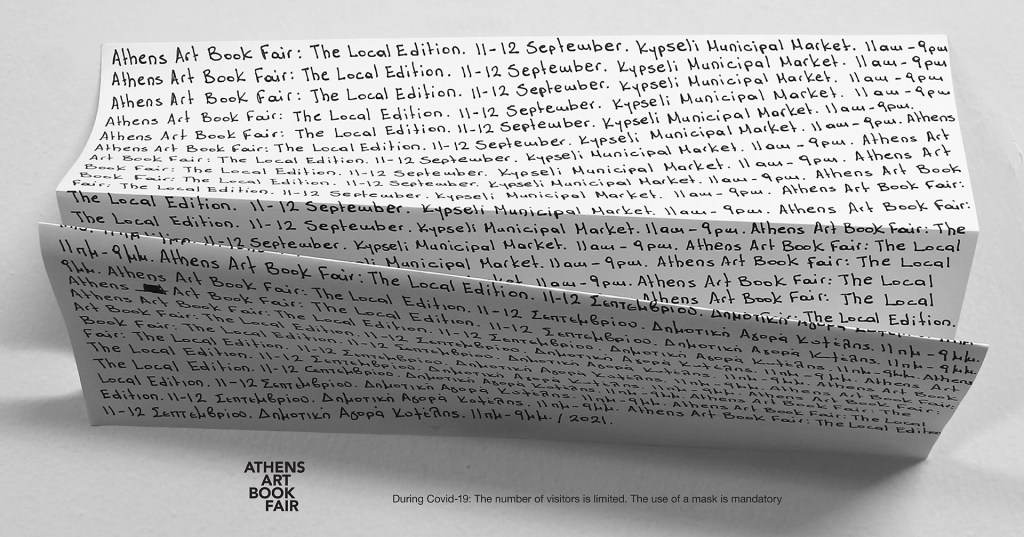 Athens Art Book Fair: The Local Edition. 11-12 September. Kypseli Municipal Market. 11am-9pm
Athens Art Book Fair: The Local Edition. 11-12 September. Kypseli Municipal Market. 11am-9pm
Athens Art Book Fair: The Local Edition. 11-12 September. Kypseli Municipal Market. 11am-9pm
Athens Art Book Fair: The Local Edition. 11-12 September. Kypseli Municipal Market. 11am-9pm.
Athens Art Book Fair: The Local Edition. 11-12 September. Kypseli Municipal Market. 11am-9pm. Athens
Athens Art Book Fair: The Local Edition. 11-12 September. Kypseli Municipal Market. 11am-9pm. Athens Art
Art Book Fair: The Local Edition. 11-12 September. Kypseli Municipal Market. 11am-9pm. Athens Art
Book Fair: The Local Edition. 11-12 September. Kypseli Municipal Market. 11am-9pm. Athens Art Book
Book Fair: The Local Edition. 11-12 September. Kypseli Municipal Market. 11am-9pm. Athens Art Book Fair:
Fair: The Local Edition. 11-12 September. Kypseli Municipal Market. 11am-9pm. Athens Art Book Fair:
The Local Edition. 11-12 September. Kypseli Municipal Market. 11am-9pm. Athens Art Book Fair: The
The Local Edition. 11-12 September. Kypseli Municipal Market. 11am-9pm. Athens Art Book Fair: The Local
11-12 September. Kypseli Municipal Market. 11am-9pm. Athens Art Book Fair: The Local
11am-9pm. Athens Art Book Fair: The Local
Athens Art Book Fair: The Local Edition.
11πμ-9μμ. Athens Art Book Fair: The Local Edition. 11-12 Σεπτεμβρίου. Δημοτική Αγορά
9μμ. Athens Art Book Fair: The Local Edition. 11-12 Σεπτεμβρίου. Δημοτική Αγορά Κυψέλης. 11πμ-9μμ.
Athens Art Book Fair: The Local Edition. 11-12 Σεπτεμβρίου. Δημοτική Αγορά Κυψέλης. 11πμ-9μμ.
Athens Art Book Fair: The Local Edition. 11-12 Σεπτεμβρίου. Δημοτική Αγορά Κυψέλης. 11πμ-9μμ. Athens
Art Book Fair: The Local Edition. 11-12 Σεπτεμβρίου. Δημοτική Αγορά Κυψέλης. 11πμ-9μμ. Athens Art
Book Fair: The Local Edition. 11-12 Σεπτεμβρίου. Δημοτική Αγορά Κυψέλης. 11πμ-9μμ. Athens Art Book
Fair: The Local Edition. 11-12 Σεπτεμβρίου. Δημοτική Αγορά Κυψέλης. 11πμ-9μμ. Athens Art Book Fair:
The Local Edition. 11-12 Σεπτεμβρίου. Δημοτική Αγορά Κυψέλης. 11πμ-9μμ. Athens Art Book Fair: The
The Local Edition. 11-12 Σεπτεμβρίου. Δημοτική Αγορά Κυψέλης. 11πμ-9μμ. Athens Art Book Fair: The Local
Local Edition. 11-12 Σεπτεμβρίου. Δημοτική Αγορά Κυψέλης. 11πμ-9μμ. Athens Art Book Fair: The Local
Edition. 11-12 Σεπτεμβρίου. Δημοτική Αγορά Κυψέλης. 11πμ-9μμ. Athens Art Book Fair: The Local Edition.
11-12 Σεπτεμβρίου. Δημοτική Αγορά Κυψέλης. 11πμ-9μμ. / 2021.
ATHENS
ART
BOOK
FAIR
During Covid-19: The number of visitors is limited. The use of a mask is mandatory